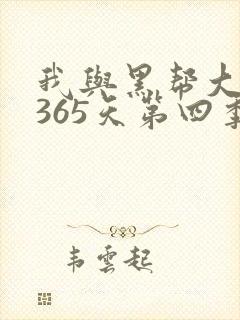 我與黑帮大
365天第四季
韦雲起